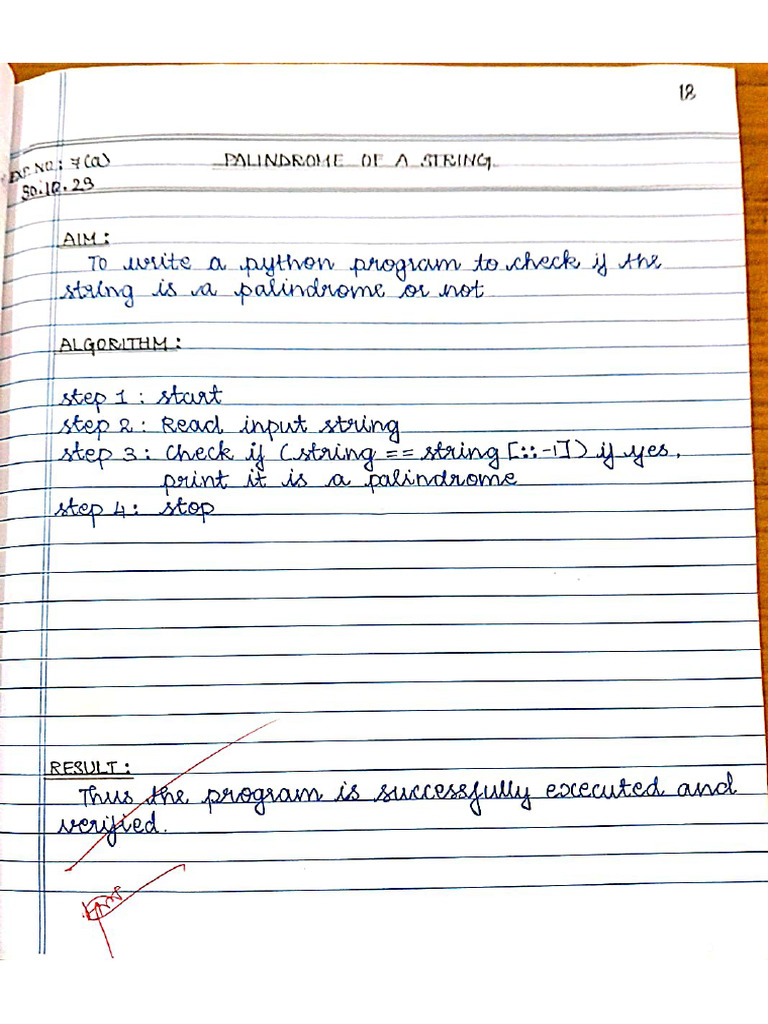 18
EXP. NO: 7(a)
PALINDROME OF A STRING
30.10.23
AIM:
To write a python program to check if the
string is a palindrome or not
ALGORITHM:
step 1: start
step 2: Read input string
step 3: Check if (string == string [::-1]) if yes,
print it is a palindrome
step 4: stop
RESULT:
Thus the program is successfully executed and
verified.